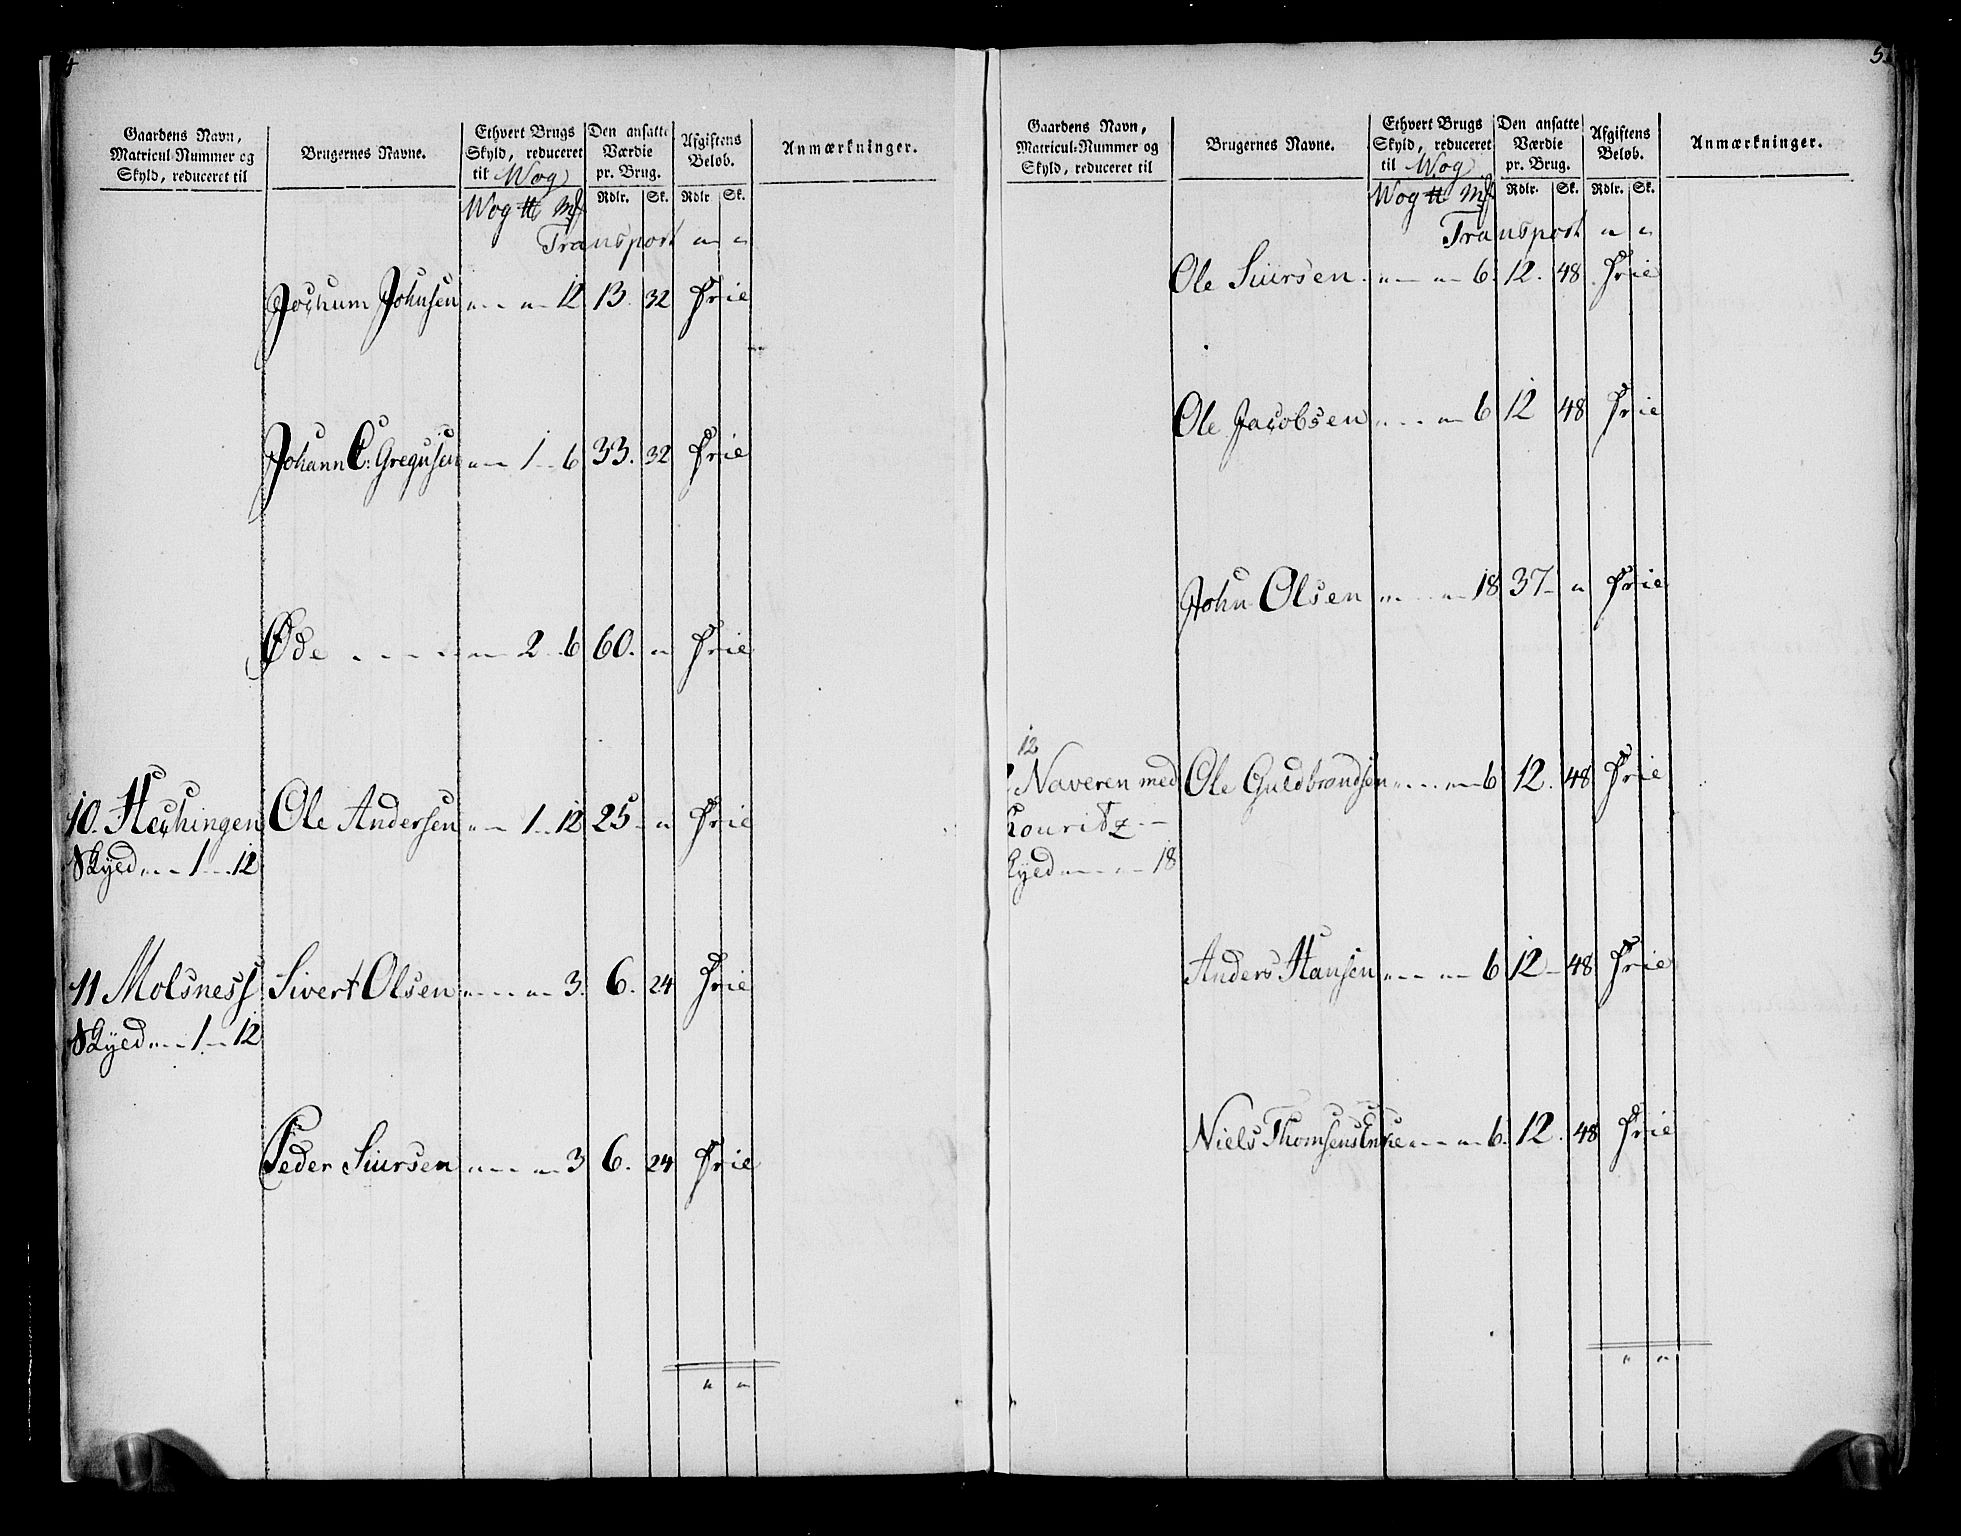 4
Gaardens Navn, Matricul-Nummer og Skyld, reduceret til
Brugernes Navne.
Ethvert Brugs Skyld, reduceret til Wog
Den ansatte Værdie pr. Brug.
Afgiftens Beløb.
Anmærkninger.
Wog ℔ Mk Rdlr. Sk. Rdlr Sk.
Transport " "
Jochum Johnsen " - - " - 12 13. 32 Frie
Johann C: Gregusen " - 1 - 6 33. 32 Frie
Øde - - - - " - 2 - 6 60. " Frie
10. Hechingen Ole Andersen " - 1 - 12 25 - " Frie
Skyld " - - 1 - 12
11 Molsness Sivert Olsen " - - - " - 3. 6. 24 Frie
Skyld " - - 1 - 12
Peder Siursen " - - - " - 3 6. 24 Frie
" "
5.
Gaardens Navn, Matricul-Nummer og Skyld, reduceret til
Brugernes Navne.
Ethvert Brugs Skyld, reduceret til Wog
Den ansatte Værdie pr. Brug.
Afgiftens Beløb.
Anmærkninger.
Wog ℔ Mk Rdlr. Sk. Rdlr. Sk.
Transport " "
Ole Siursen. " - - " - 6. 12. 48 Frie
Ole Jacobsen " - - - " - 6 12 48 Frie
John Olsen " - - - " - 18 37 - " Frie
12
Naveren med Ole Guldbrandsen " - - - " - 6 12. 48 Frie
Kouritz - -
Skyld " - - - " - 18
Anders Hansen " - - - " - 6 12 - 48 Frie
Niels Thomsens Enke " - - - " - 6. 12. 48 Frie
" "